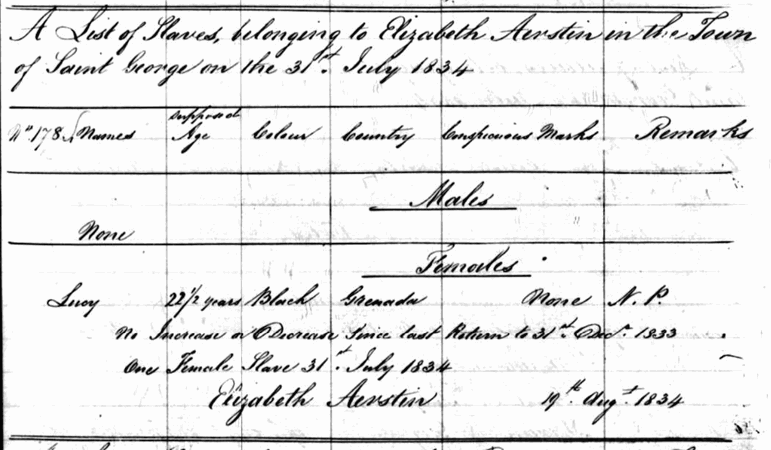 A List of Slaves, belonging to Elizabeth Aerstin in the Town
of Saint George on the 31st. July 1834
No 178 Names supposed Age Colour Country Conspicuous Marks Remarks
Males
None
Females
Lucy 22 1/2 years Black Grenada None N. P.
No Increase or Decrease Since last Return to 31st. Decr. 1833
One Female Slave 31st. July 1834
Elizabeth Aerstin 19th. Augt. 1834